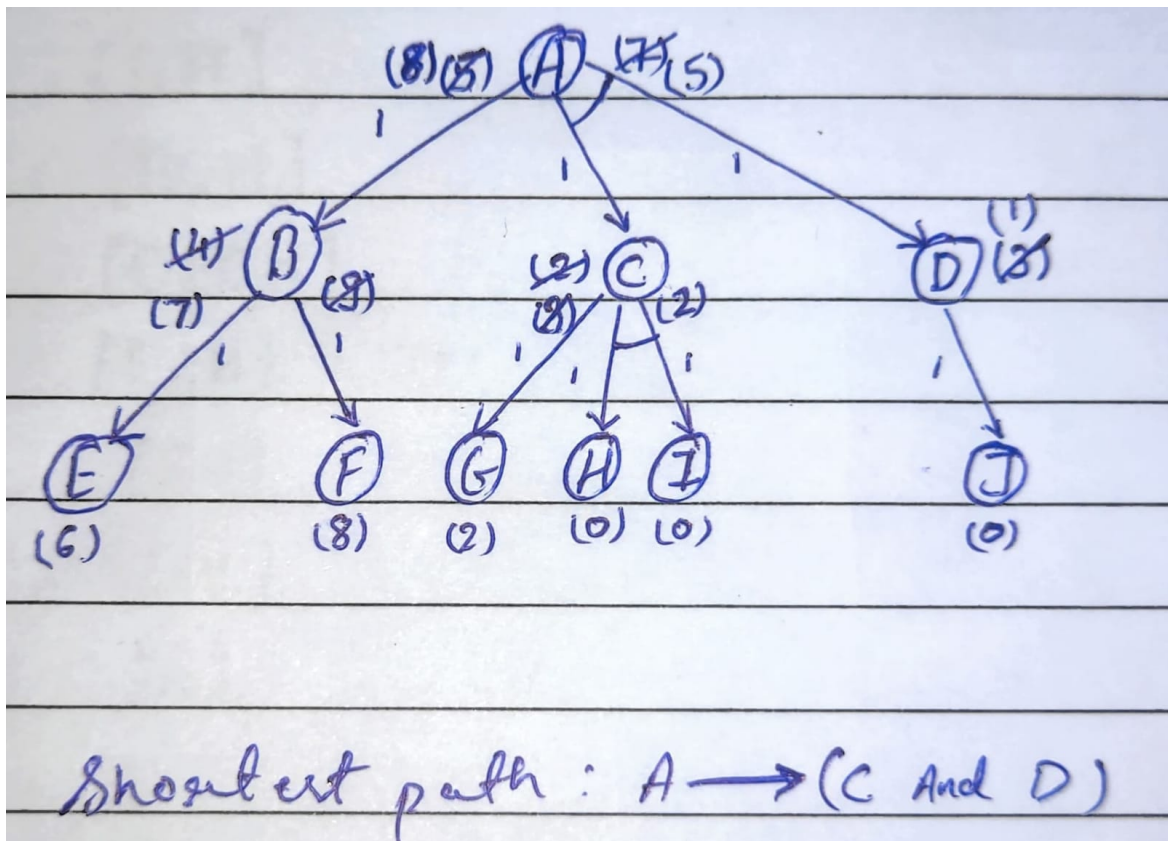 (8) (5) A (7) (5)
1 1 1
(1)
(4) B (2) C D (3)
(7) (9) (8) (2)
1 1 1 1 1 1
E F G H I J
(6) (8) (2) (0) (0) (0)
Shortest path : A → (C And D)